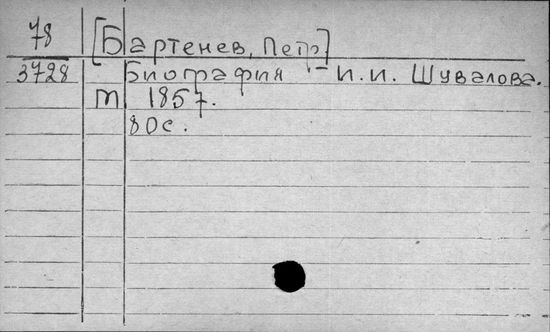 78 [Бартенев, Петр]
3728 Биография - И.И. Шувалова.
М 1857.
80с.